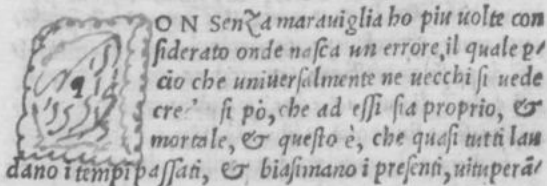 ON Senza marauiglia ho piu uolte con
siderato onde nasca un errore, il quale p̱/
cio che uniuersalmente ne uecchi si uede
cre⸗ si pò, che ad essi sia proprio, &
mortale, & questo è, che quasi tutti lau
dano i tempi passati, & biasimano i presenti, uituperā/